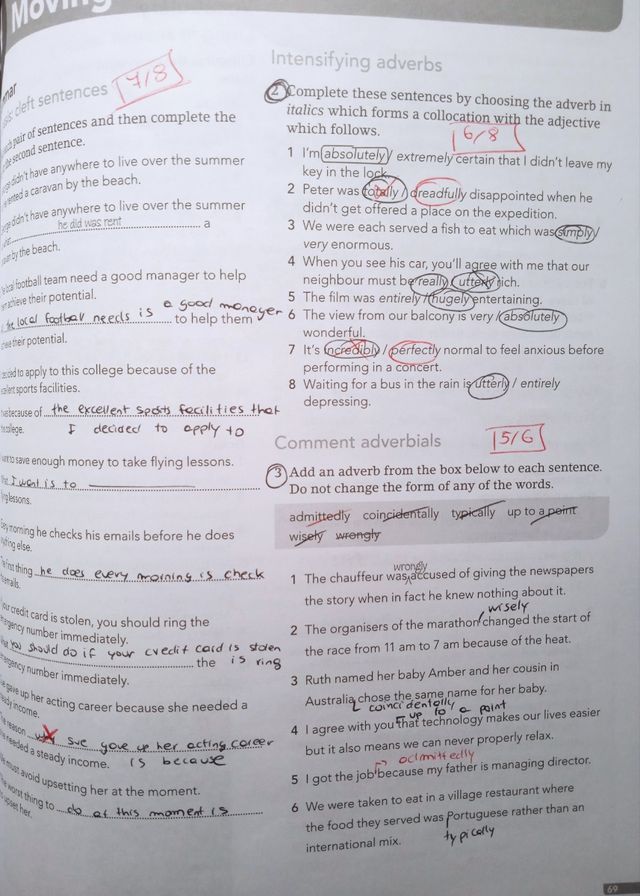 Moving
mar
cleft sentences
7/8
pair of sentences and then complete the
second sentence.
didn't have anywhere to live over the summer
rented a caravan by the beach.
didn't have anywhere to live over the summer
he did was rent a
by the beach.
local football team need a good manager to help
achieve their potential.
the local football needs is a good manager to help them
their potential.
to apply to this college because of the
sports facilities.
because of the excellent sports facilities that
college. I decided to apply to
to save enough money to take flying lessons.
I want is to
lessons.
morning he checks his emails before he does
else.
thing he does every morning is check
emails.
your credit card is stolen, you should ring the
number immediately.
you should do if your credit card is stolen
the is ring
number immediately.
gave up her acting career because she needed a
steady income.
reason why she gave up her acting career
needed a steady income. is because
must avoid upsetting her at the moment.
worst thing to do at this moment is
upset her.
Intensifying adverbs
2 Complete these sentences by choosing the adverb in
italics which forms a collocation with the adjective
which follows.
6/8
1 I'm absolutely / extremely certain that I didn't leave my
key in the lock.
2 Peter was totally / dreadfully disappointed when he
didn't get offered a place on the expedition.
3 We were each served a fish to eat which was simply /
very enormous.
4 When you see his car, you'll agree with me that our
neighbour must be really / utterly rich.
5 The film was entirely / hugely entertaining.
6 The view from our balcony is very / absolutely
wonderful.
7 It's incredibly / perfectly normal to feel anxious before
performing in a concert.
8 Waiting for a bus in the rain is utterly / entirely
depressing.
Comment adverbials
5/6
3 Add an adverb from the box below to each sentence.
Do not change the form of any of the words.
admittedly coincidentally typically up to a point
wisely wrongly
wrongly
1 The chauffeur was accused of giving the newspapers
the story when in fact he knew nothing about it.
wisely
2 The organisers of the marathon changed the start of
the race from 11 am to 7 am because of the heat.
3 Ruth named her baby Amber and her cousin in
Australia chose the same name for her baby.
coincidentally
up to a point
4 I agree with you that technology makes our lives easier
but it also means we can never properly relax.
admittedly
5 I got the job because my father is managing director.
6 We were taken to eat in a village restaurant where
the food they served was Portuguese rather than an
typically
international mix.
69